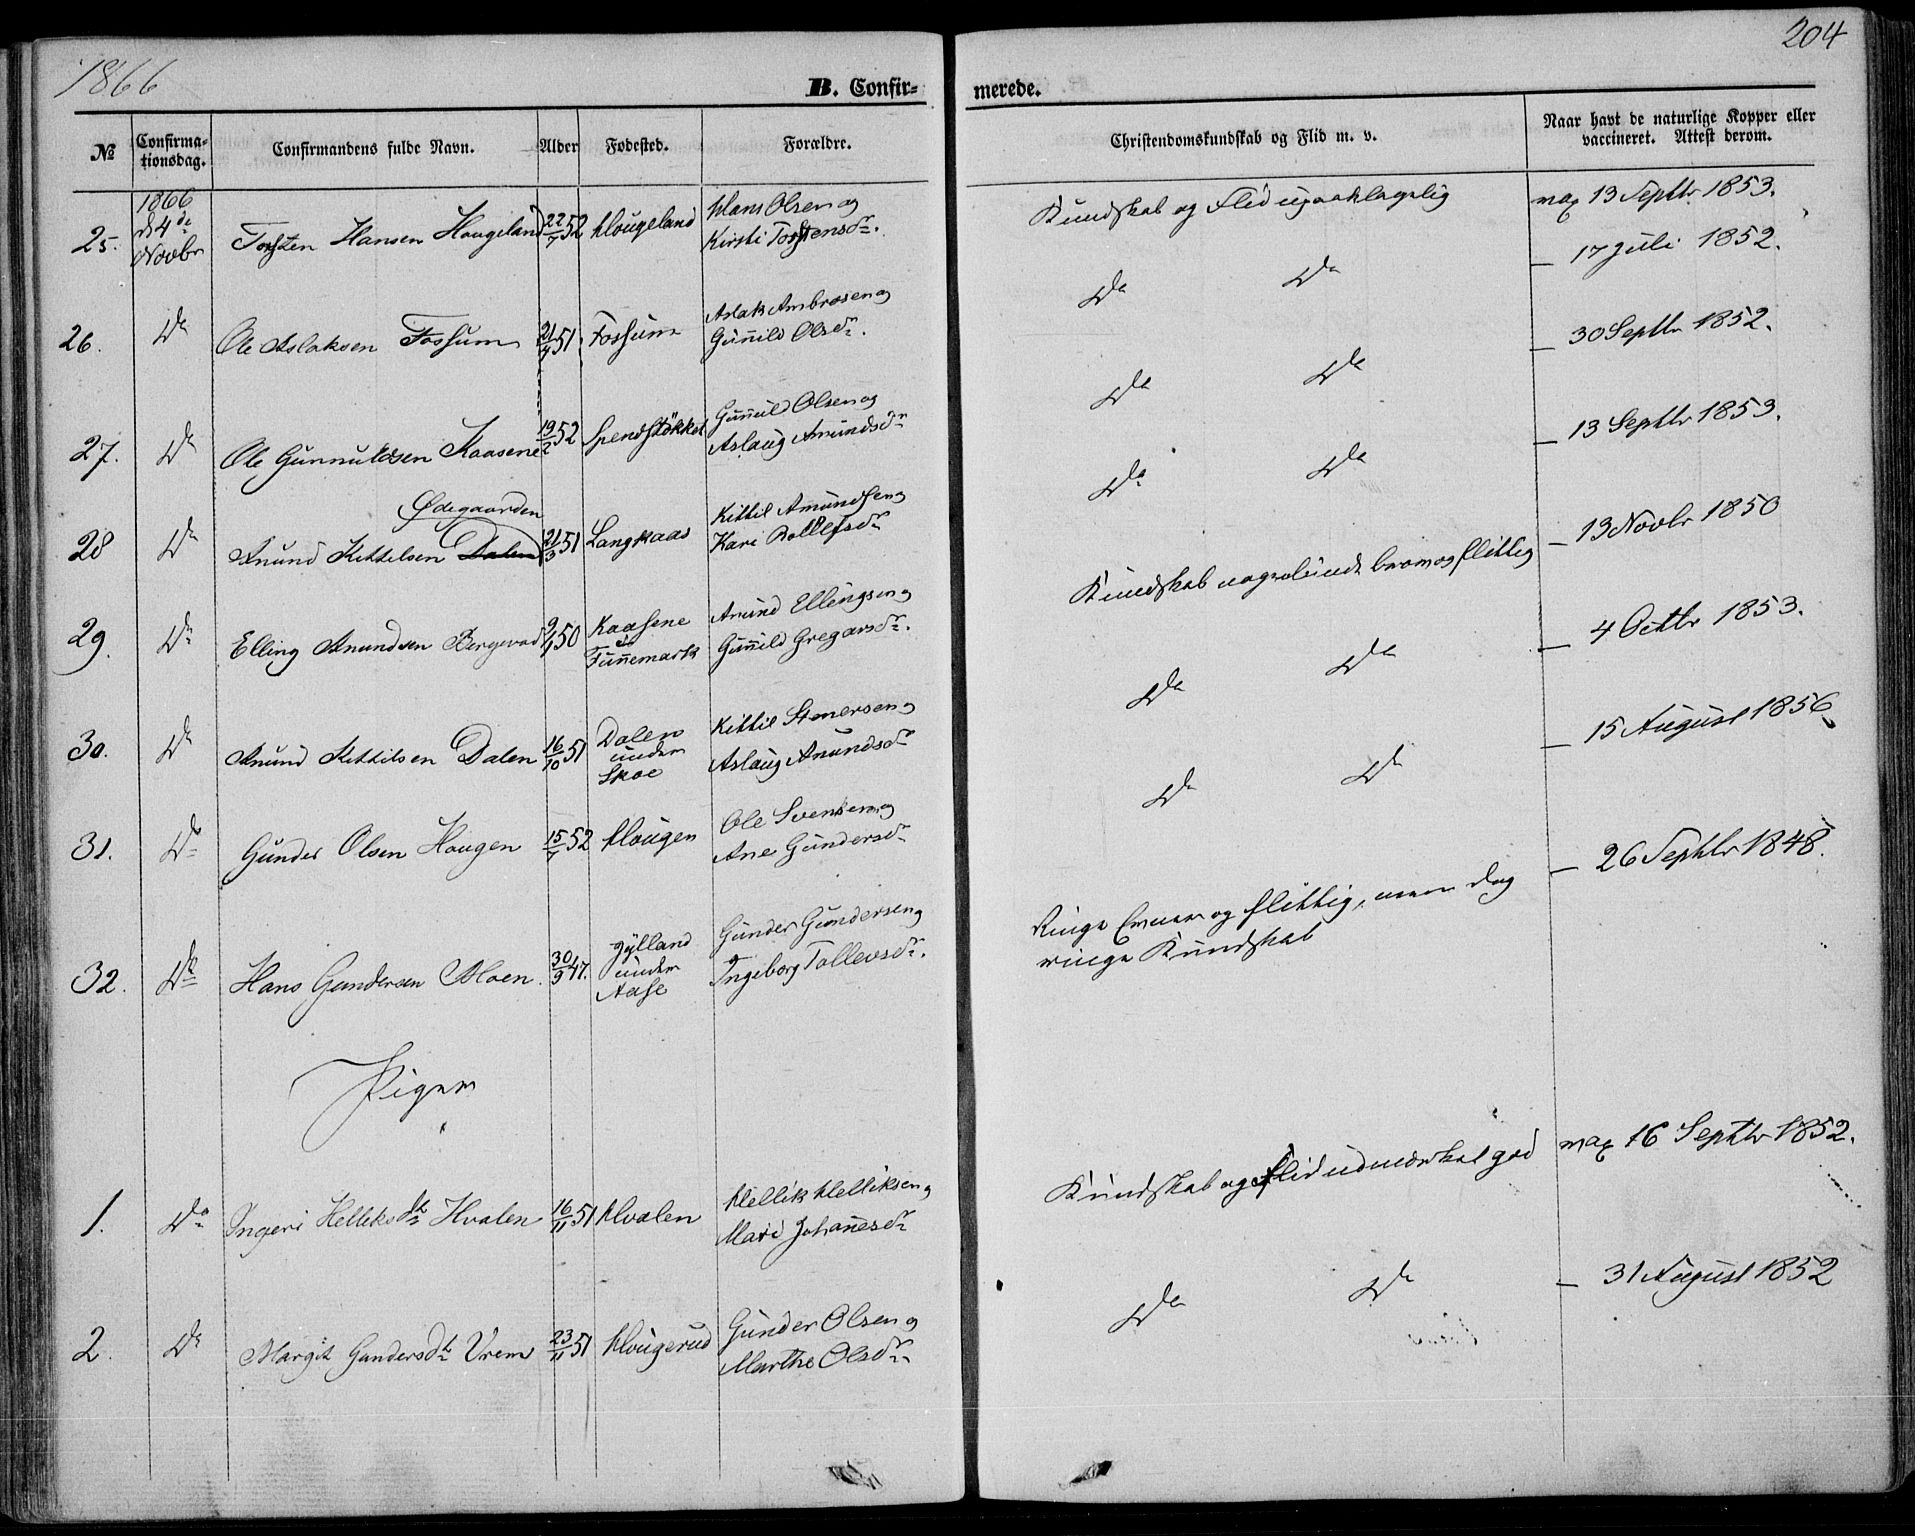 1866
204
B. Confir=
merede.
№
Confirma=
tionsdag.
Confirmandens fulde Navn.
Alder
Fødested.
Forældre.
Christendomskundskab og Flid m. v.
Naar havt de naturlige Kopper eller
vaccineret. Attest derom.
25. 1866 d 4de Novbr Torsten Hansen Hougeland 22/7 52 Hougeland Hans Olsen og
Kirsti Torstensdr.
Kundskab og Flid upaaklagelig
vax 13 Septbr 1853.
26. Do Ole Aslaksen Fossum 21/4 51 Fossum Aslak Ambrosen og
Gunild Olsdr.
Do Do
— 17 Juli 1852.
27. Do Ole Gunnuldsen Kaasene 19/2 52 Spendstøkket Gunuld Olsen og
Aslaug Amundsdr
Do Do
— 30 Septbr 1852.
Ødegaarden
28 Do Anund Kittelsen Dalen 21/3 51 Langkaas Kittil Amundsen og
Kari Rollefsdr
Do Do
— 13 Septbr 1853.
29. Do Elling Anundsen Bergevad 9/1 50 Kaasene
Tunnemark
Anund Ellingsen og
Gunild Gregarsdr.
Kundskab nogenlunde from og flittig
— 13 Novbr 1850
30. Do Anund Kittilsen Dalen 16/10 51 Dalen
under
Skoe
Kittil Stenersen og
Aslaug Anundsdr
Do Do
— 4 Octbr 1853.
31. Do Gunder Olsen Hougen 15/7 52 Hougen Ole Svensen og
Ane Gundersdr
Do Do
— 15 August 1856
32. Do Hans Gundersen Moen. 30/9 47. Jylland
under
Aase
Gunder Gundersen og
Ingeborg Tollevsdr.
Ringe Evner og flittig, men dog
ringe Kundskab
— 26 Septbr 1848.
Piger
1. Do Ingeri Helleksdtr Hvalen 16/11 51 Hvalen Hellik Helliksen og
Mari Johanesdr
Kundskab og Flid udmærket god
vax 16 Septbr 1852.
2. Do Margit Gundersdtr Vrem 23/11 51 Hougerud Gunder Olsen og
Marthe Olsdr.
Do Do
— 31 August 1852